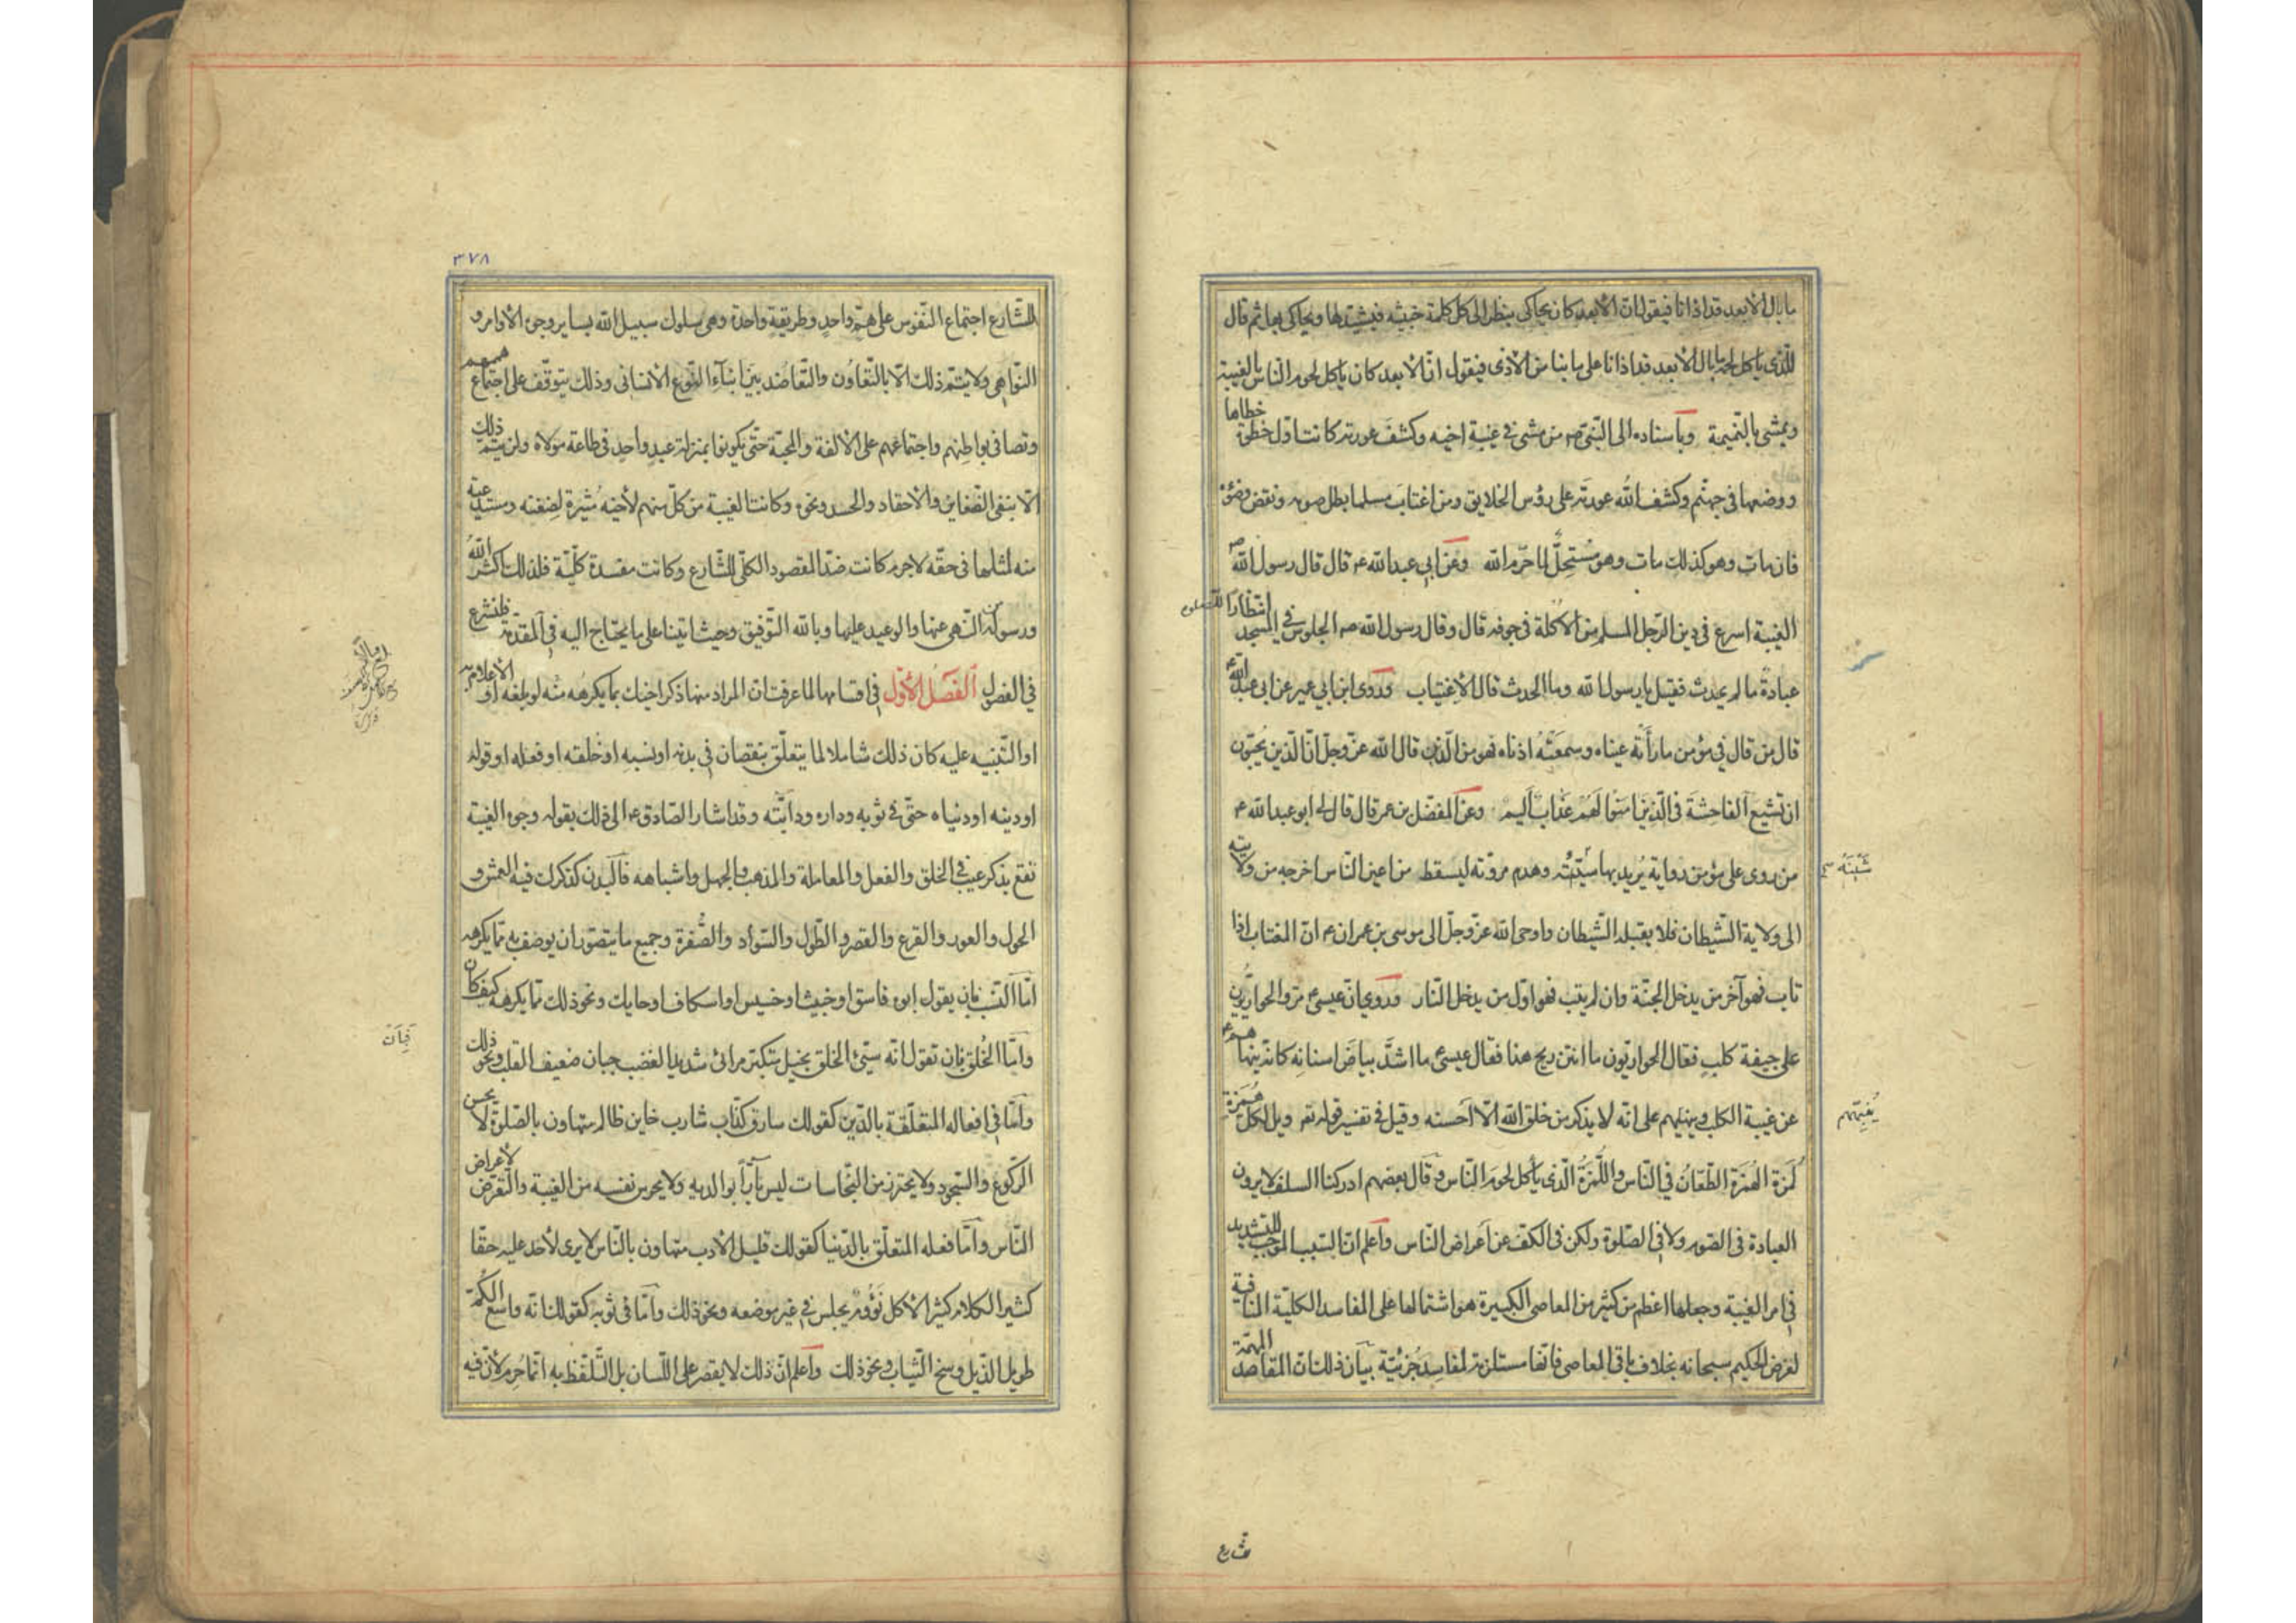 ما بال الأبعد قد اذانا فيقول ان الأبعد كان يحاكى ينظر الى كل كلمة خبيثه فيشيدها ويحاكى بها ثم قال
للّذى يأكل لحمه ما بال الأبعد قد اذانا على ما بنا من الأذى فيقول انّ الأبعد كان يأكل لحوم الناس بالغيبة
ويمشى بالنّميمة وبأسناده الى النّبى ص من مشى فى غيبة اخيه وكشف عورته كانت اول خطوة خطاها
ووضعها فى جهنّم وكشف الله عورته على رؤس الخلايق ومن اغتاب مسلما بطل صومه ونقض وضؤه
فان مات وهو كذلك مات وهو مُستحِلّ لما حرّم الله وعن ابى عبد الله ع قال قال رسول الله ص
الغيبة اسرع فى دين الرّجل المسلم من الأكلة فى جوفه قال وقال رسول الله ص الجلوس فى المسجد انتظارا للصلوة
عبادةٌ ما لم يحدث فقيل يا رسول الله وما الحدث قال الأغتياب وروى ابن ابى عمير عن ابى عبد الله ع
قال من قال فى مؤمن ما رأته عيناه وسمعته اذناه فهو من الّذين قال الله عزّ وجلّ انّ الّذين يُحبّون
ان تشيع الفاحشة فى الّذين امنوا لهم عذاب أليم وعن المفضّل بن عمر قال قال لى ابو عبد الله ع
من روى على مؤمن رواية يُريد بها شينه وهدم مروّته ليسقط من اعين النّاس اخرجه من ولايته
شَينَهُ
الى ولاية الشّيطان فلا يقبله الشّيطان واوحى الله عزّ وجلّ الى موسى بن عمران ع انّ المغتاب اذا
تاب فهو آخر من يدخل الجنّة وان لم يتب فهو اوّل من يدخل النّار وروى انّ عيسى ع مرّ والحواريّون
على جيفة كلب فقال الحواريّون ما انتن ريح هذا فقال عيسى ع ما اشدّ بياض اسنانه كانه ينهاهم ع
عن غيبة الكلب وينبّههم على انّه لا يذكر من خلق الله الّا احسنه وقيل فى تفسير قوله تع ويل لكلّ هُمَزة
لُمَزة الهُمَزة الطّعّان فى النّاس واللُّمَزة الّذى يأكل لحوم النّاس وقال بعضهم ادركنا السلف لا يرون
العبادة فى الصّوم ولا فى الصّلوة ولكن فى الكفّ عن اعراض النّاس واعلم انّ السّبب الموجب للتشديد
فى امر الغيبة وجعلها اعظم من كثير من المعاصى الكبيرة هو اشتمالها على المفاسد الكلّيّة المنافية
لغرض الحكيم سبحانه بخلاف باقى المعاصى فانّها مستلزمة لمفاسد جُزئيّة بيان ذلك انّ المقاصد المهمّة
٣٧٨
للشّارع اجتماع النّفوس على همّ واحد وطريقة واحدة وهى سلوك سبيل الله بساير وجوه الأوامر و
النّواهى ولا يتمّ ذلك الّا بالتّعاون والتّعاضد بين ابناء النّوع الأنسانى وذلك يتوقّف على اجتماع هممهم
وتصافى بواطنهم واجتماعهم على الألفة والمحبّة حتّى يكونوا بمنزلة عبد واحد فى طاعة مولاه ولن يتمّ ذلك
الّا بنفى الضّغاين والأحقاد والحسد ونحوه وكانت الغيبة من كلّ منهم لأخيه مُثيرة لضغنه ومستدعية
منه لمثلها فى حقّه لا جرم كانت ضدّ المقصود الكلّى للشّارع وكانت مفسدة كلّيّة فلذلك اكثر الله
ورسوله من النّهى عنها والوعيد عليها وبالله التّوفيق وحيث اتينا على ما يحتاج اليه فى المقدّمة فلنشرع
فى الفصول الفصل الأوّل فى اقسامها لما عرفت ان المراد منها ذكر اخيك بما يكرهه منه لو بلغه او الأعلام به
او التّنبيه عليه كان ذلك شاملا لما يتعلّق بنقصان فى بدنه او نسبه او خلقه او فعله او قوله
او دينه او دنياه حتّى فى ثوبه وداره ودابّته وقد اشار الصّادق ع الى ذلك بقوله وجوه الغيبة
تقع بذكر عيب فى الخلق والفعل والمعاملة والمذهب والجهل واشباهه فالبدن كذكرك فيه العمش و
الحول والعور والقرع والقصر والطّول والسّواد والصّفرة وجميع ما يتصوّر ان يوصف به ممّا يكرهه
امّا النّسب فان يقول ابوه فاسق او خبيث او خسيس او اسكاف او حايك ونحو ذلك ممّا يكرهه كيف كان
فبان
وامّا الخُلق فان تقول انّه سيّئ الخلق بخيل متكبّر مرائى شديد الغضب جبان ضعيف القلب ونحو ذلك
وامّا فى افعاله المتعلّقة بالدّين كقولك سارق كذّاب شارب خاين ظالم متهاون بالصّلوة لا يحسن
الرّكوع والسّجود ولا يحترز من النّجاسات ليس بارّا بوالديه ولا يحرس نفسه من الغيبة والتّعرّض لأعراض
النّاس وامّا فعله المتعلّق بالدّنيا كقولك قليل الأدب متهاون بالنّاس لا يرى لأحد عليه حقّا
كثير الكلام كثير الأكل نَؤُوم يجلس فى غير موضعه ونحو ذلك وامّا فى ثوبه كقولك انّه واسع الكُمّ
طويل الذّيل وسخ الثّياب ونحو ذلك واعلم انّ ذلك لا يقصر على اللّسان بل التّلفّظ به انّما حُرم لأنّ فيه